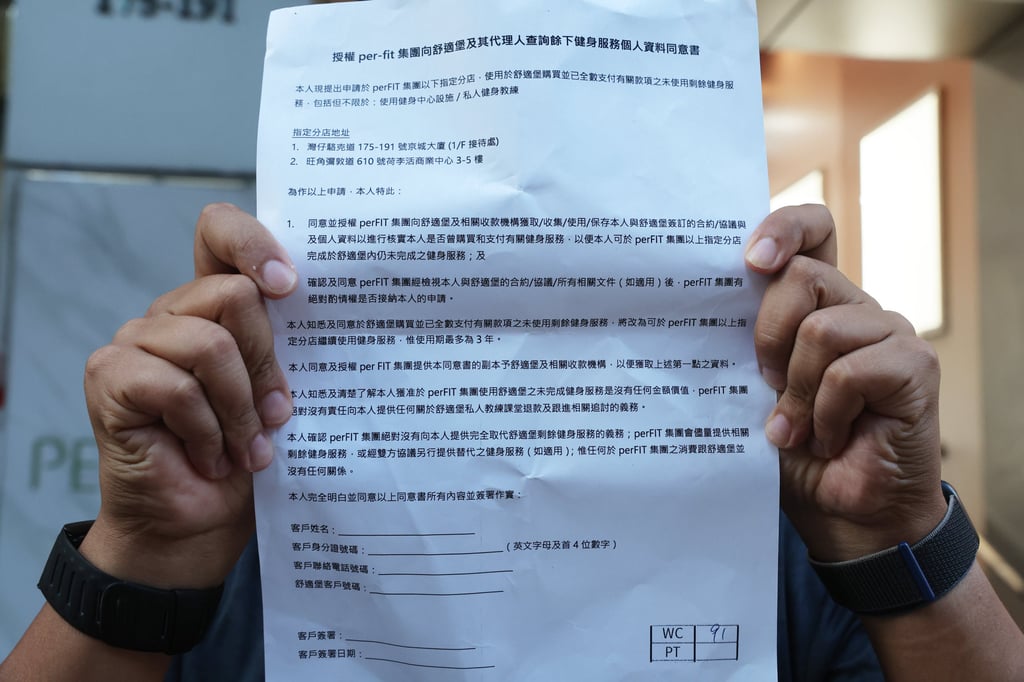 175-191
授權 per-fit 集團向舒適堡及其代理人查詢餘下健身服務個人資料同意書
本人現提出申請於 perFIT 集團以下指定分店，使用於舒適堡購買並已全數支付有關款項之未使用剩餘健身服
務，包括但不限於：使用健身中心設施 / 私人健身教練
指定分店地址
1. 灣仔駱克道 175-191 號京城大廈 (1/F 接待處)
2. 旺角彌敦道 610 號荷李活商業中心 3-5 樓
為作以上申請，本人特此：
1. 同意並授權 perFIT 集團向舒適堡及相關收款機構獲取/收集/使用/保存本人與舒適堡簽訂的合約/協議與
及個人資料以進行核實本人是否曾購買和支付有關健身服務，以便本人可於 perFIT 集團以上指定分店
完成於舒適堡內仍未完成之健身服務；及
確認及同意 perFIT 集團經檢視本人與舒適堡的合約/協議/所有相關文件（如適用）後，perFIT 集團有
絕對酌情權是否接納本人的申請。
本人知悉及同意於舒適堡購買並已全數支付有關款項之未使用剩餘健身服務，將改為可於 perFIT 集團以上指
定分店繼續使用健身服務，惟使用期最多為 3 年。
本人同意及授權 per FIT 集團提供本同意書的副本予舒適堡及相關收款機構，以便獲取上述第一點之資料。
本人知悉及清楚了解本人獲准於 perFIT 集團使用舒適堡之未完成健身服務是沒有任何金額價值，perFIT 集團
絕對沒有責任向本人提供任何關於舒適堡私人教練課堂退款及跟進相關追討的義務。
本人確認 perFIT 集團絕對沒有向本人提供完全取代舒適堡剩餘健身服務的義務；perFIT 集團會儘量提供相關
剩餘健身服務，或經雙方協議另行提供替代之健身服務（如適用）；惟任何於 perFIT 集團之消費跟舒適堡並
沒有任何關係。
本人完全明白並同意以上同意書所有內容並簽署作實：
客戶姓名：
客戶身分證號碼：（英文字母及首 4 位數字）
客戶聯絡電話號碼：
舒適堡客戶號碼：
客戶簽署：
客戶簽署日期：
WC 91
PT
PE